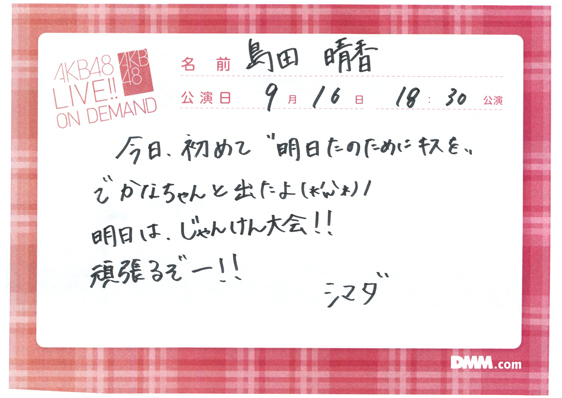 AKB48
LIVE!!
ON DEMAND
AKB
48
名前 島田 晴香
公演日 9月16日 18:30公演
今日、初めて〝明日たのためにキスを〟
でかなちゃんと出たよ(*'ω'*)ノ
明日は、じゃんけん大会!!
頑張るぞー!!
シマダ
DMM.com